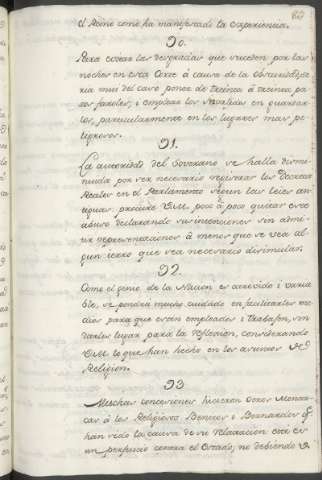 el Reino como ha manifestado la experiencia.
90.
Para evitar las desgracias que suceden por las
noches en esta Corte à causa de la obscuridad, se
ria mui del caso poner de treinta à treinta pa
sos faroles; i emplear los Invalidos en quarte
les, particularmente en los lugares mas pe
ligrosos.
91.
La autoridad del Soverano se halla dismi
nuida por ser necesario registrar los Decretos
Reales en el Parlamento segun las leies an
tiguas: procure V.M. poco à poco quitar este
abuso declarando sus intenciones sin admi
tir representaciones à menos que se vea al
gun ierro que sea necesario disimular.
92
Como el genio de la Nacion es atrevido i varia
ble, se pondrà mucho cuidado en facilitarles me
dios para que esten empleados i trabajen, sin
darles lugar para la reflexion, considerando
V.M. lo que han hecho en los asuntos de
Religion.
93
Muchas concesiones hicieron otros Monar
cas à los Religiosos Benitos i Bernardos q
han sido la causa de su relaxacion esta es
un perjuicio contra el Estado, no debiendo